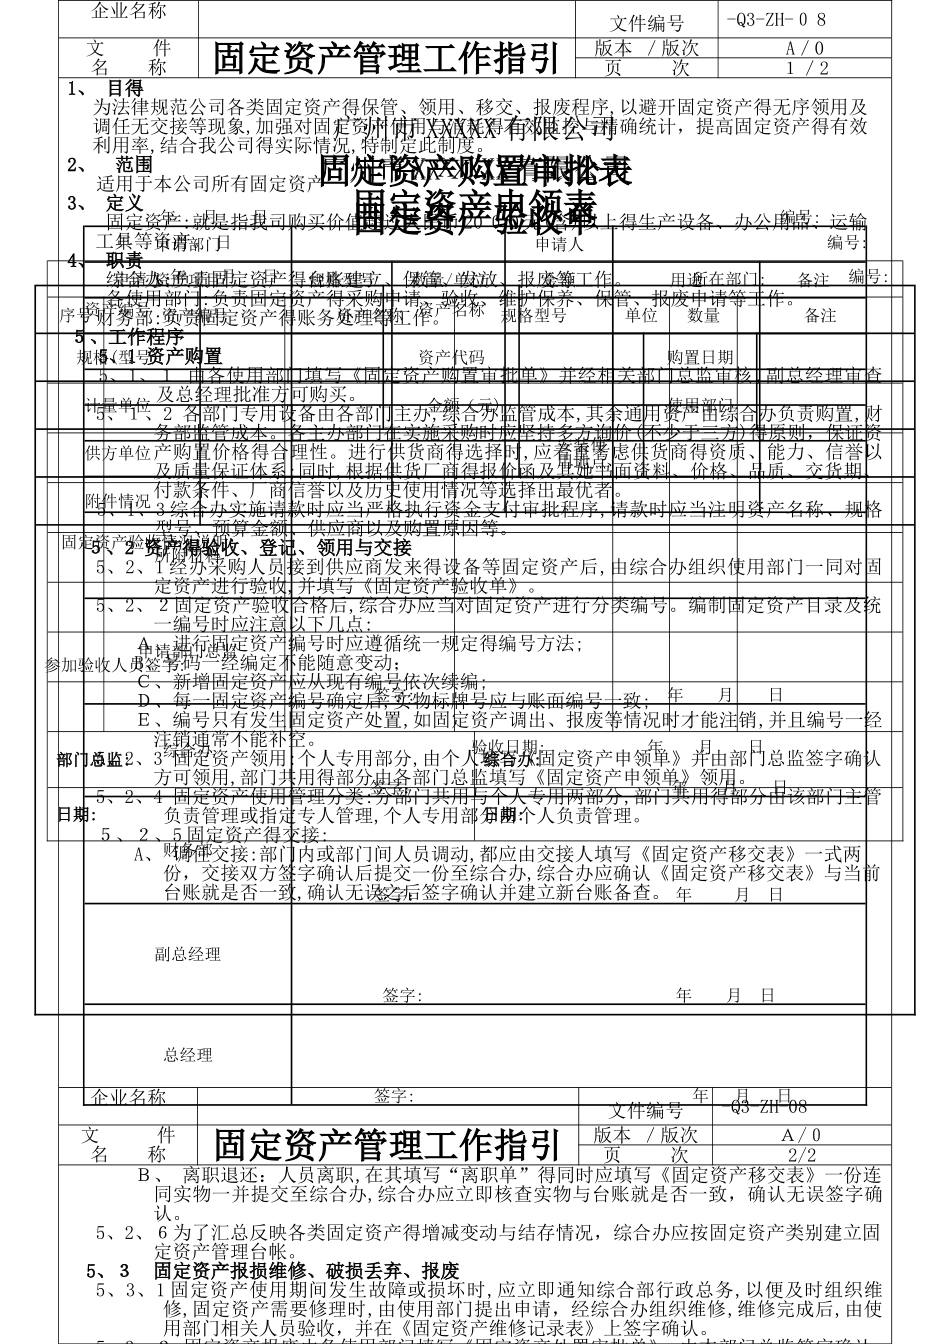 企业名称
文件编号
-Q3-ZH-08
文 件
名 称
固定资产管理工作指引
版本 / 版次
A/0
页 次
1/2
1、 目得
为法律规范公司各类固定资产得保管、领用、移交、报废程序,以避开固定资产得无序领用及
调任无交接等现象,加强对固定资产
广州市XXXXX有限公司
利用率,结合我公司得实际情况,特制定此制度。
2、 范围
固定资产购置审批表
适用于本公司所有固定资产
固定资产申领表
固定资产验收单
3、 定义
年 月 日
编号:
申请部门
申请人
编号:
工具等资产。
4、 职责
年 月 日
所在部门:
编号:
备注
各使用部门:负责固定资产得采购申请、验收、维护保养、保管、报废申请等工作。
资产名称
序号
规格型号
单位
数量
备注
财务部:负责固定资产得账务处理等工作。
5、工作程序
5、1 资产购置
规格(型号)
资产代码
购置日期
5、1、1 由各使用部门填写《固定资产购置审批单》并经相关部门总监审核,副总经理审查
及总经理批准方可购买。
计量单位
金额(元)
使用部门
5、1、2 各部门专用设备由各部门主办,综合办监管成本,其余通用资产由综合办负责购置,财
务部监管成本。各主办部门在实施采购时应坚持多方询价(不少于三方)得原则，保证资
供方单位
产购置价格得合理性。进行供货商得选择时,应着重考虑供货商得资质、能力、信誉以
及质量保证体系;同时,根据供货厂商得报价函及其她书面资料、价格、品质、交货期、
付款条件、厂商信誉以及历史使用情况等选择出最优者。
附件情况
5、1、3综合办实施请款时应当严格执行资金支付审批程序,请款时应当注明资产名称、规格
型号、预算金额、供应商以及购置原因等。
固定资产验收情况说明
5、2 资产得验收、登记、领用与交接
5、2、1经办采购人员接到供应商发来得设备等固定资产后,由综合办组织使用部门一同对固
定资产进行验收,并填写《固定资产验收单》。
5、2、2固定资产验收合格后,综合办应当对固定资产进行分类编号。编制固定资产目录及统
一编号时应注意以下几点:
A、进行固定资产编号时应遵循统一规定得编号方法;
申请部门总监
参加验收人员签字
B、号码一经编定不能随意变动;
C、新增固定资产应从现有编号依次续编;
签字:
年 月 日
D、每一固定资产编号确定后,实物标牌号应与账面编号一致;
E、编号只有发生固定资产处置,如固定资产调出、报废等情况时才能注销,并且编号一经
注销通常不能补空。
综合办
验收日期: 年 月 日
部门总监:
综合办:
5、2、3 固定资产领用:个人专用部分,由个人填写《固定资产申领单》并由部门总监签字确认
方可领用,部门共用得部分由各部门总监填写《固定资产申领单》领用。
签字:
年 月 日
5、2、4 固定资产使用管理分类:分部门共用与个人专用两部分,部门共用得部分由该部门主管
负责管理或指定专人管理,个人专用部分由个人负责管理。
日期:
日期:
5、2、5固定资产得交接:
财务部
A、 调任交接:部门内或部门间人员调动,都应由交接人填写《固定资产移交表》一式两
份，交接双方签字确认后提交一份至综合办,综合办应确认《固定资产移交表》与当前
台账就是否一致,确认无误之后签字确认并建立新台账备查。
签字:
年 月 日
副总经理
签字:
年 月 日
总经理
签字:
年 月 日
企业名称
文件编号
-Q3-ZH-08
文 件
名 称
固定资产管理工作指引
版本 / 版次
A/0
页 次
2/2
B、 离职退还：人员离职,在其填写“离职单”得同时应填写《固定资产移交表》一份连
同实物一并提交至综合办,综合办应立即核查实物与台账就是否一致，确认无误签字确
认。
5、2、6为了汇总反映各类固定资产得增减变动与结存情况，综合办应按固定资产类别建立固
定资产管理台帐。
5、3 固定资产报损维修、破损丢弃、报废
5、3、1固定资产使用期间发生故障或损坏时,应立即通知综合部行政总务,以便及时组织维
修,固定资产需要修理时,由使用部门提出申请，经综合办组织维修,维修完成后,由使
用部门相关人员验收，并在《固定资产维修记录表》上签字确认。